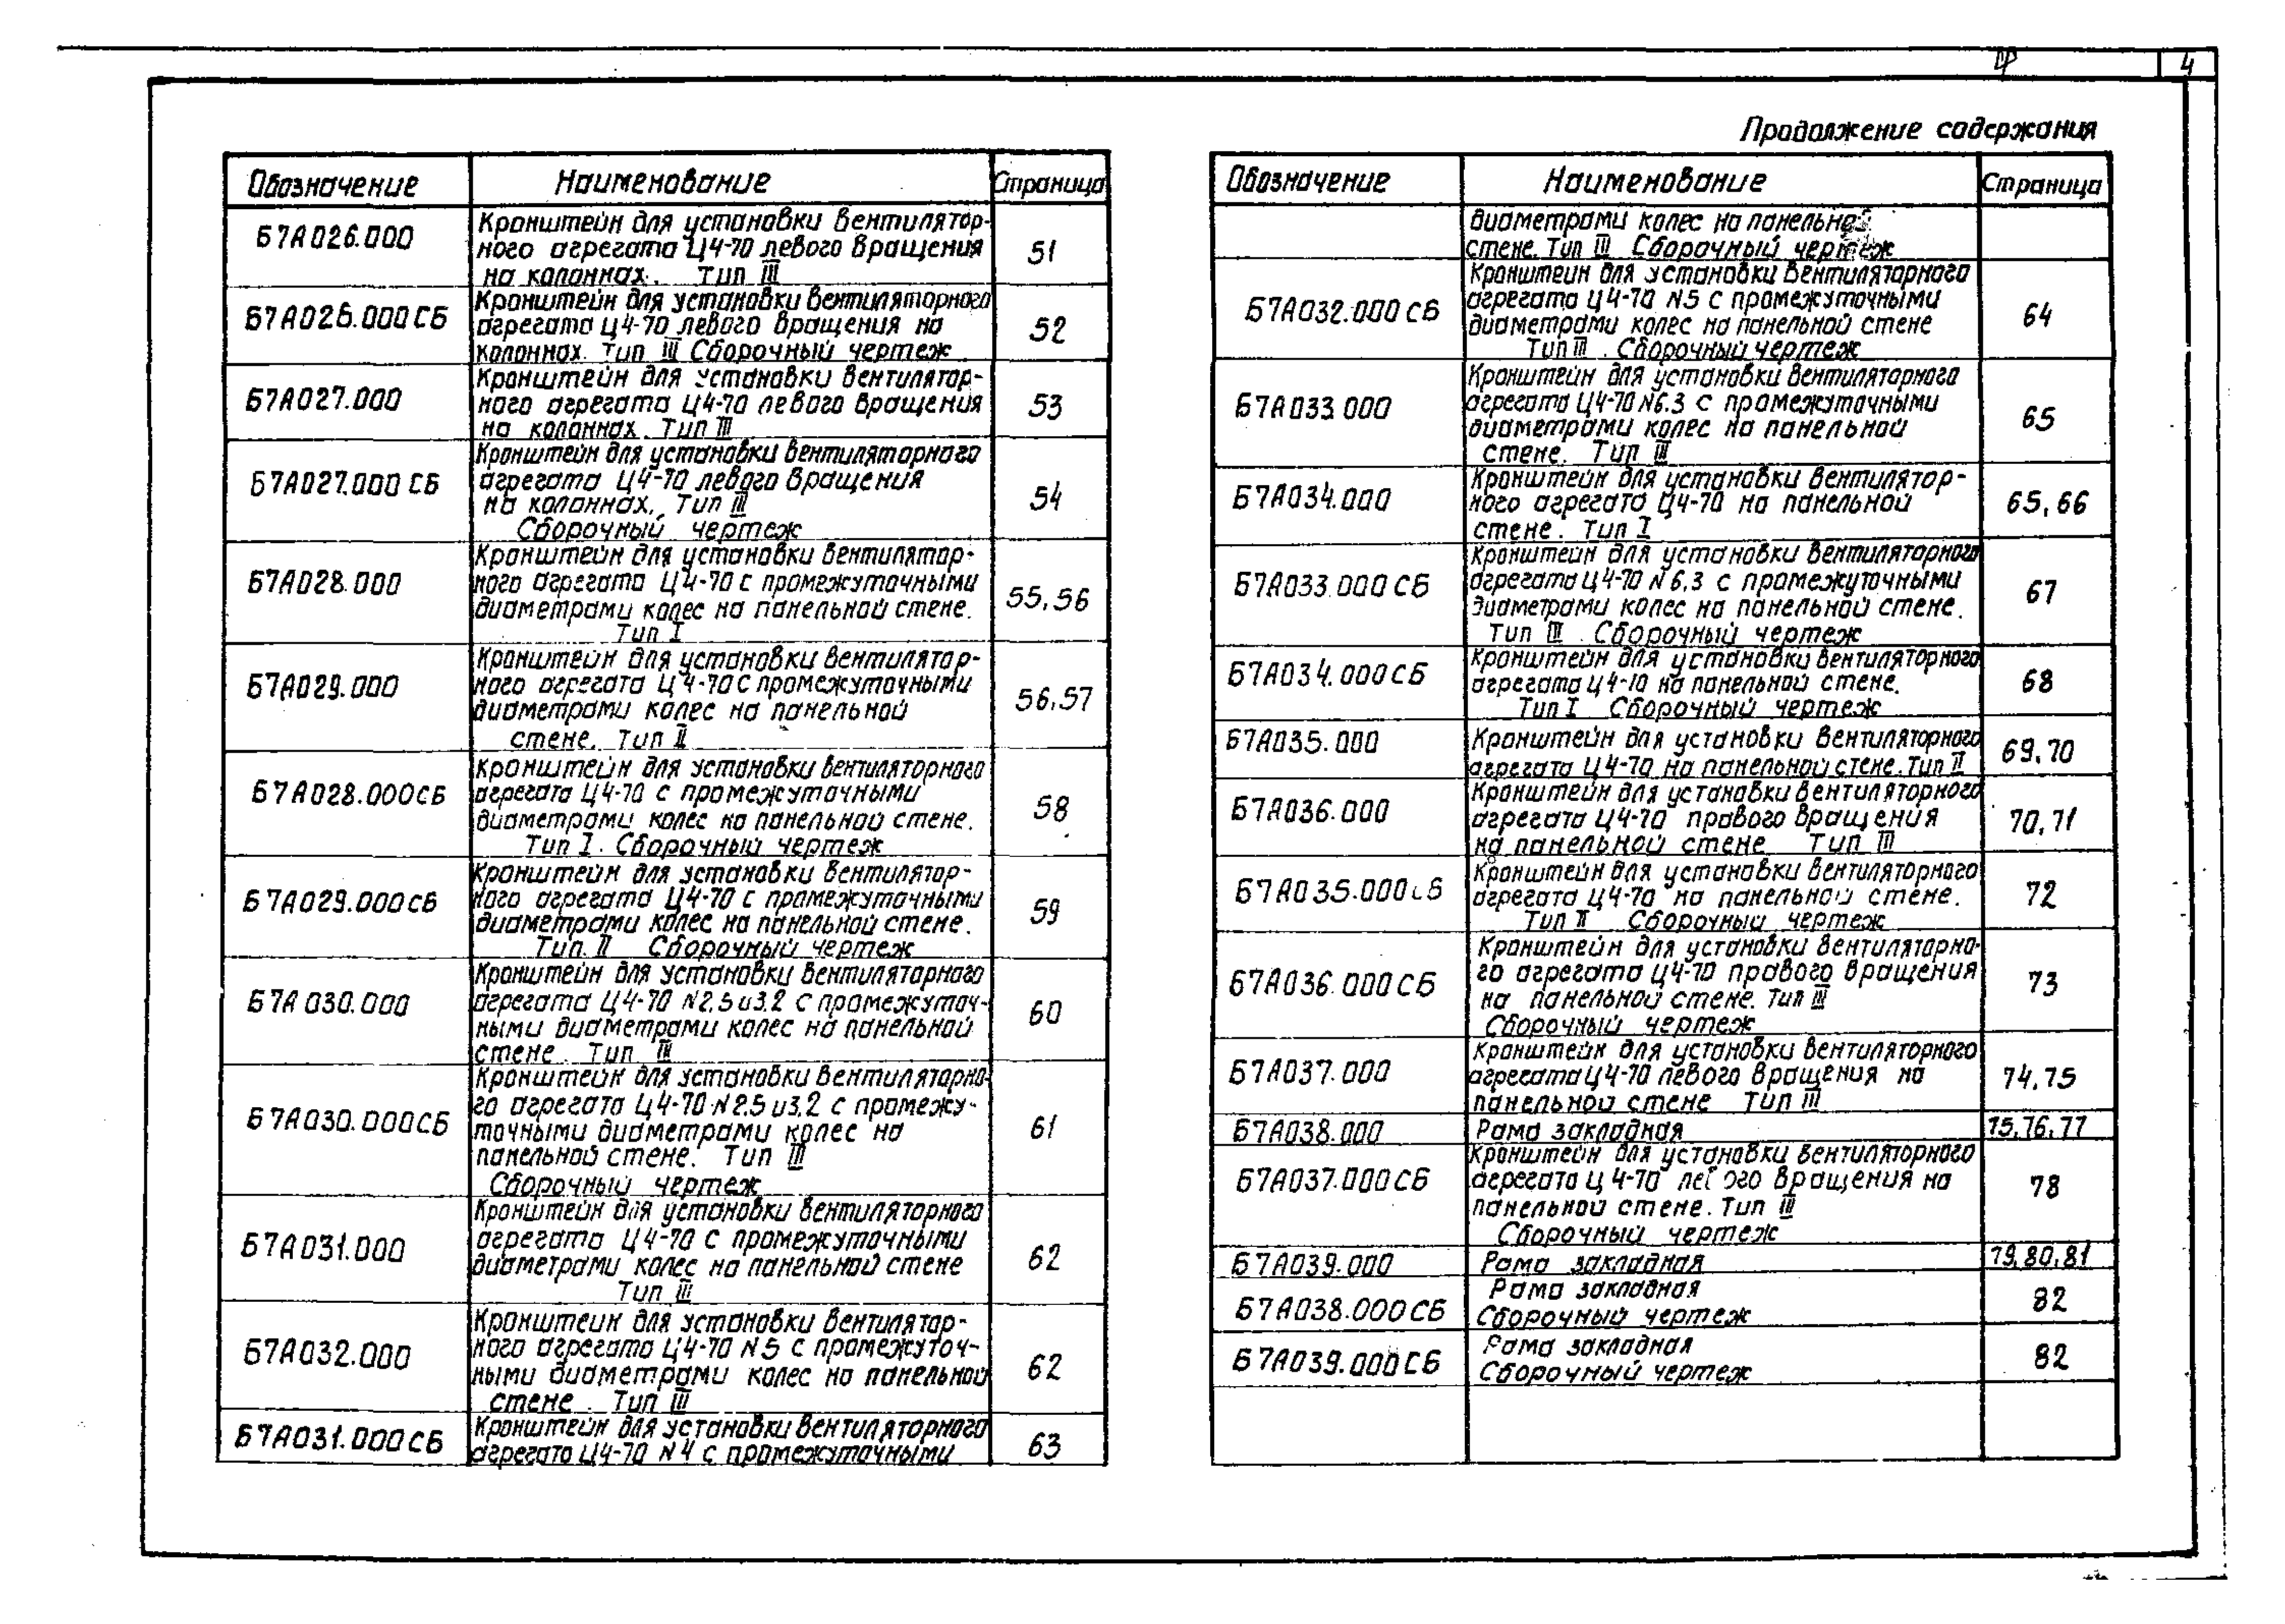 4
Продолжение содержания
Обозначение Наименование Страница
Б7А026.000 Кронштейн для установки вентилятор-
ного агрегата Ц4-70 левого вращения 51
на колоннах. Тип III
Б7А026.000СБ Кронштейн для установки вентиляторного
агрегата Ц4-70 левого вращения на 52
колоннах. Тип III Сборочный чертеж
Б7А027.000 Кронштейн для установки вентилятор-
ного агрегата Ц4-70 левого вращения 53
на колоннах. Тип III
Б7А027.000 СБ Кронштейн для установки вентиляторного
агрегата Ц4-70 левого вращения
на колоннах. Тип III 54
Сборочный чертеж
Б7А028.000 Кронштейн для установки вентилятор-
ного агрегата Ц4-70 с промежуточными
диаметрами колес на панельной стене. 55,56
Тип I
Б7А029.000 Кронштейн для установки вентилятор-
ного агрегата Ц4-70 с промежуточными
диаметрами колес на панельной 56,57
стене. Тип II
Б7А028.000СБ Кронштейн для установки вентиляторного
агрегата Ц4-70 с промежуточными
диаметрами колес на панельной стене. 58
Тип I. Сборочный чертеж
Б7А029.000СБ Кронштейн для установки вентилятор-
ного агрегата Ц4-70 с промежуточными
диаметрами колес на панельной стене. 59
Тип. II Сборочный чертеж
Б7А030.000 Кронштейн для установки вентиляторного
агрегата Ц4-70 N2,5 и3,2 с промежуточ-
ными диаметрами колес на панельной 60
стене. Тип III
Б7А030.000СБ Кронштейн для установки вентиляторно-
го агрегата Ц4-70 N2,5 и3,2 с промежу-
точными диаметрами колес на 61
панельной стене. Тип III
Сборочный чертеж
Б7А031.000 Кронштейн для установки вентиляторного
агрегата Ц4-70 с промежуточными
диаметрами колес на панельной стене 62
Тип III
Б7А032.000 Кронштейн для установки вентилятор-
ного агрегата Ц4-70 N5 с промежуточ-
ными диаметрами колес на панельной 62
стене. Тип III
Б7А031.000СБ Кронштейн для установки вентиляторного
агрегата Ц4-70 N4 с промежуточными 63
Обозначение Наименование Страница
диаметрами колес на панельной
стене. Тип III Сборочный чертеж
Б7А032.000 СБ Кронштейн для установки вентиляторного
агрегата Ц4-70 N5 с промежуточными
диаметрами колес на панельной стене 64
Тип III. Сборочный чертеж
Б7А033.000 Кронштейн для установки вентиляторного
агрегата Ц4-70 N6.3 с промежуточными
диаметрами колес на панельной 65
стене. Тип III
Б7А034.000 Кронштейн для установки вентилятор-
ного агрегата Ц4-70 на панельной 65,66
стене. Тип I
Б7А033.000СБ Кронштейн для установки вентиляторного
агрегата Ц4-70 N6,3 с промежуточными
диаметрами колес на панельной стене. 67
Тип III. Сборочный чертеж
Б7А034.000СБ Кронштейн для установки вентиляторного
агрегата Ц4-70 на панельной стене. 68
Тип I Сборочный чертеж
Б7А035.000 Кронштейн для установки вентиляторного
агрегата Ц4-70 на панельной стене. Тип II 69,70
Б7А036.000 Кронштейн для установки вентиляторного
агрегата Ц4-70 правого вращения 70,71
на панельной стене Тип III
Б7А035.000СБ Кронштейн для установки вентиляторного
агрегата Ц4-70 на панельной стене. 72
Тип II Сборочный чертеж
Б7А036.000СБ Кронштейн для установки вентиляторно-
го агрегата Ц4-70 правого вращения 73
на панельной стене. Тип III
Сборочный чертеж
Б7А037.000 Кронштейн для установки вентиляторного
агрегата Ц4-70 левого вращения на 74,75
панельной стене Тип III
Б7А038.000 Рама закладная 75,76,77
Б7А037.000СБ Кронштейн для установки вентиляторного
агрегата Ц4-70 левого вращения на 78
панельной стене. Тип III
Сборочный чертеж
Б7А039.000 Рама закладная 79,80,81
Б7А038.000СБ Рама закладная 82
Сборочный чертеж
Б7А039.000СБ Рама закладная 82
Сборочный чертеж